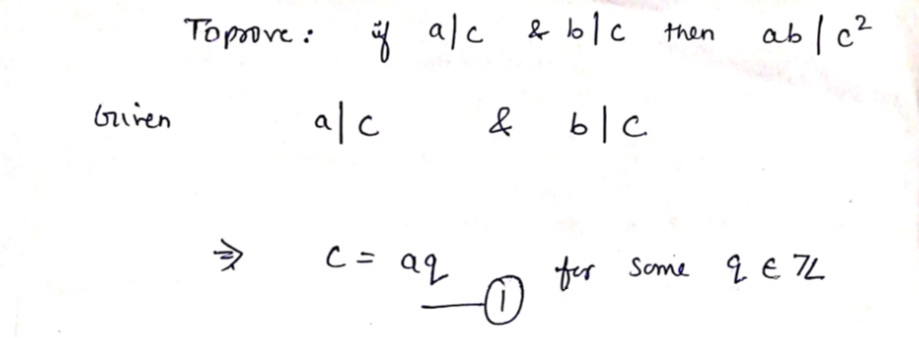 To prove : if a|c & b|c then ab | c²
Given a|c & b|c
⇒ c = aq —① for some q ∈ ℤ